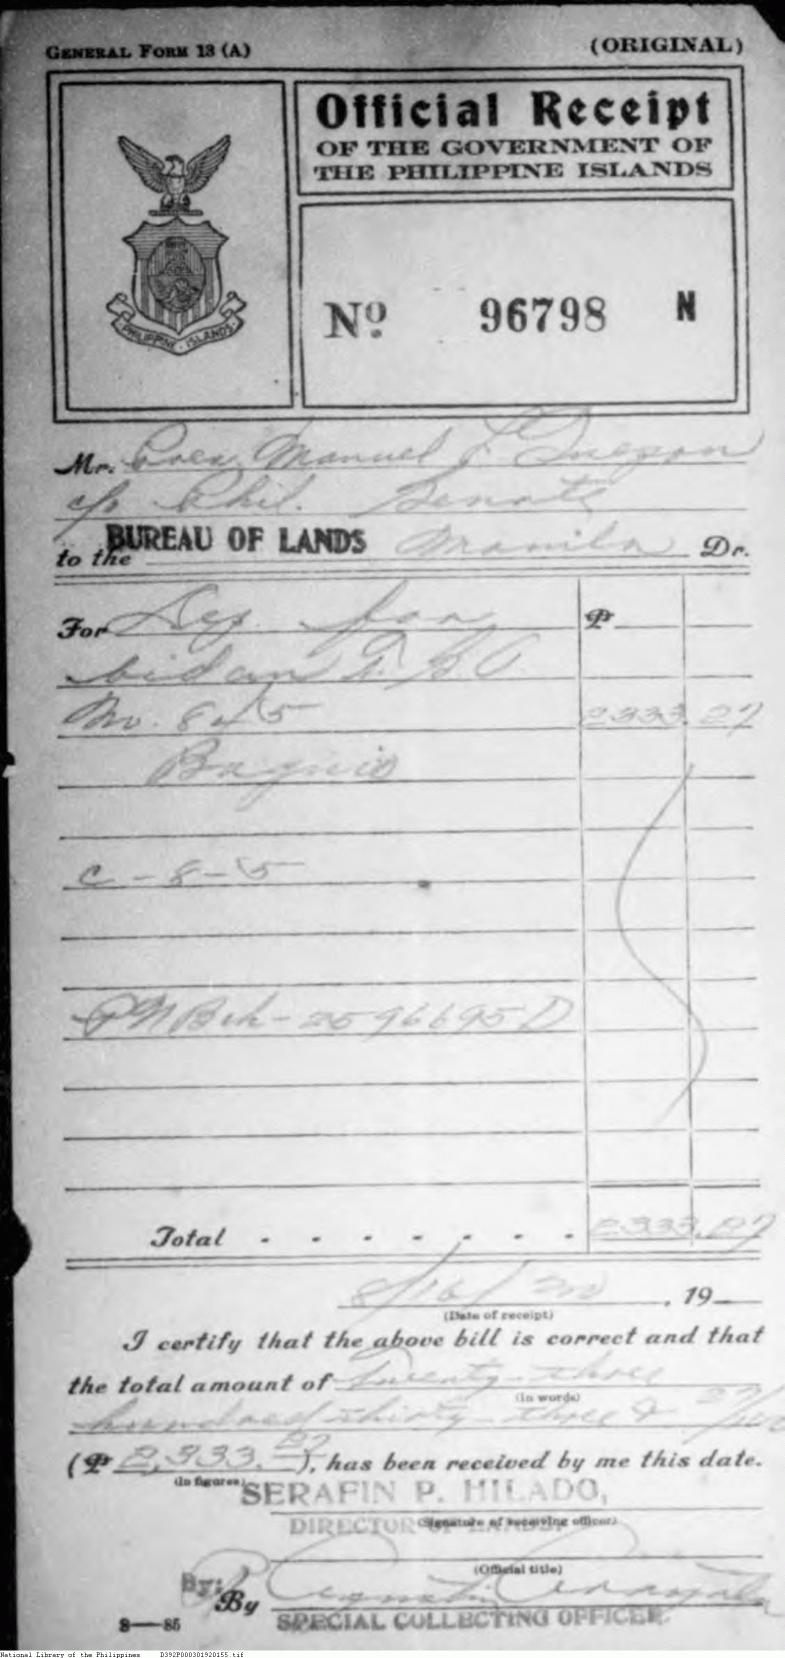 GENERAL FORM 13 (A)
(ORIGINAL)
Official Receipt
OF THE GOVERNMENT OF
THE PHILIPPINE ISLANDS
PHILIPPINE ISLANDS
No. 96798 N
Mr. Pres. Manuel L. Quezon
c/o Phil. Senate
to the BUREAU OF LANDS Manila Dr.
For Dep. for ₱
bid on T. S. A.
No. 845 2333.27
Baguio
C-8-5
PNBch-2596695D
Total - - - - - - - 2333.27
8/16/20, 19
(Date of receipt)
I certify that the above bill is correct and that
the total amount of Twenty-three
(In words)
hundred thirty-three & 27/100
(₱ 2,333.27), has been received by me this date.
(In figures)
SERAFIN P. HILADO,
(Signature of receiving officer)
DIRECTOR OF LANDS,
(Official title)
By:
By
SPECIAL COLLECTING OFFICER
8—85
National Library of the Philippines D392P000301920155.tif